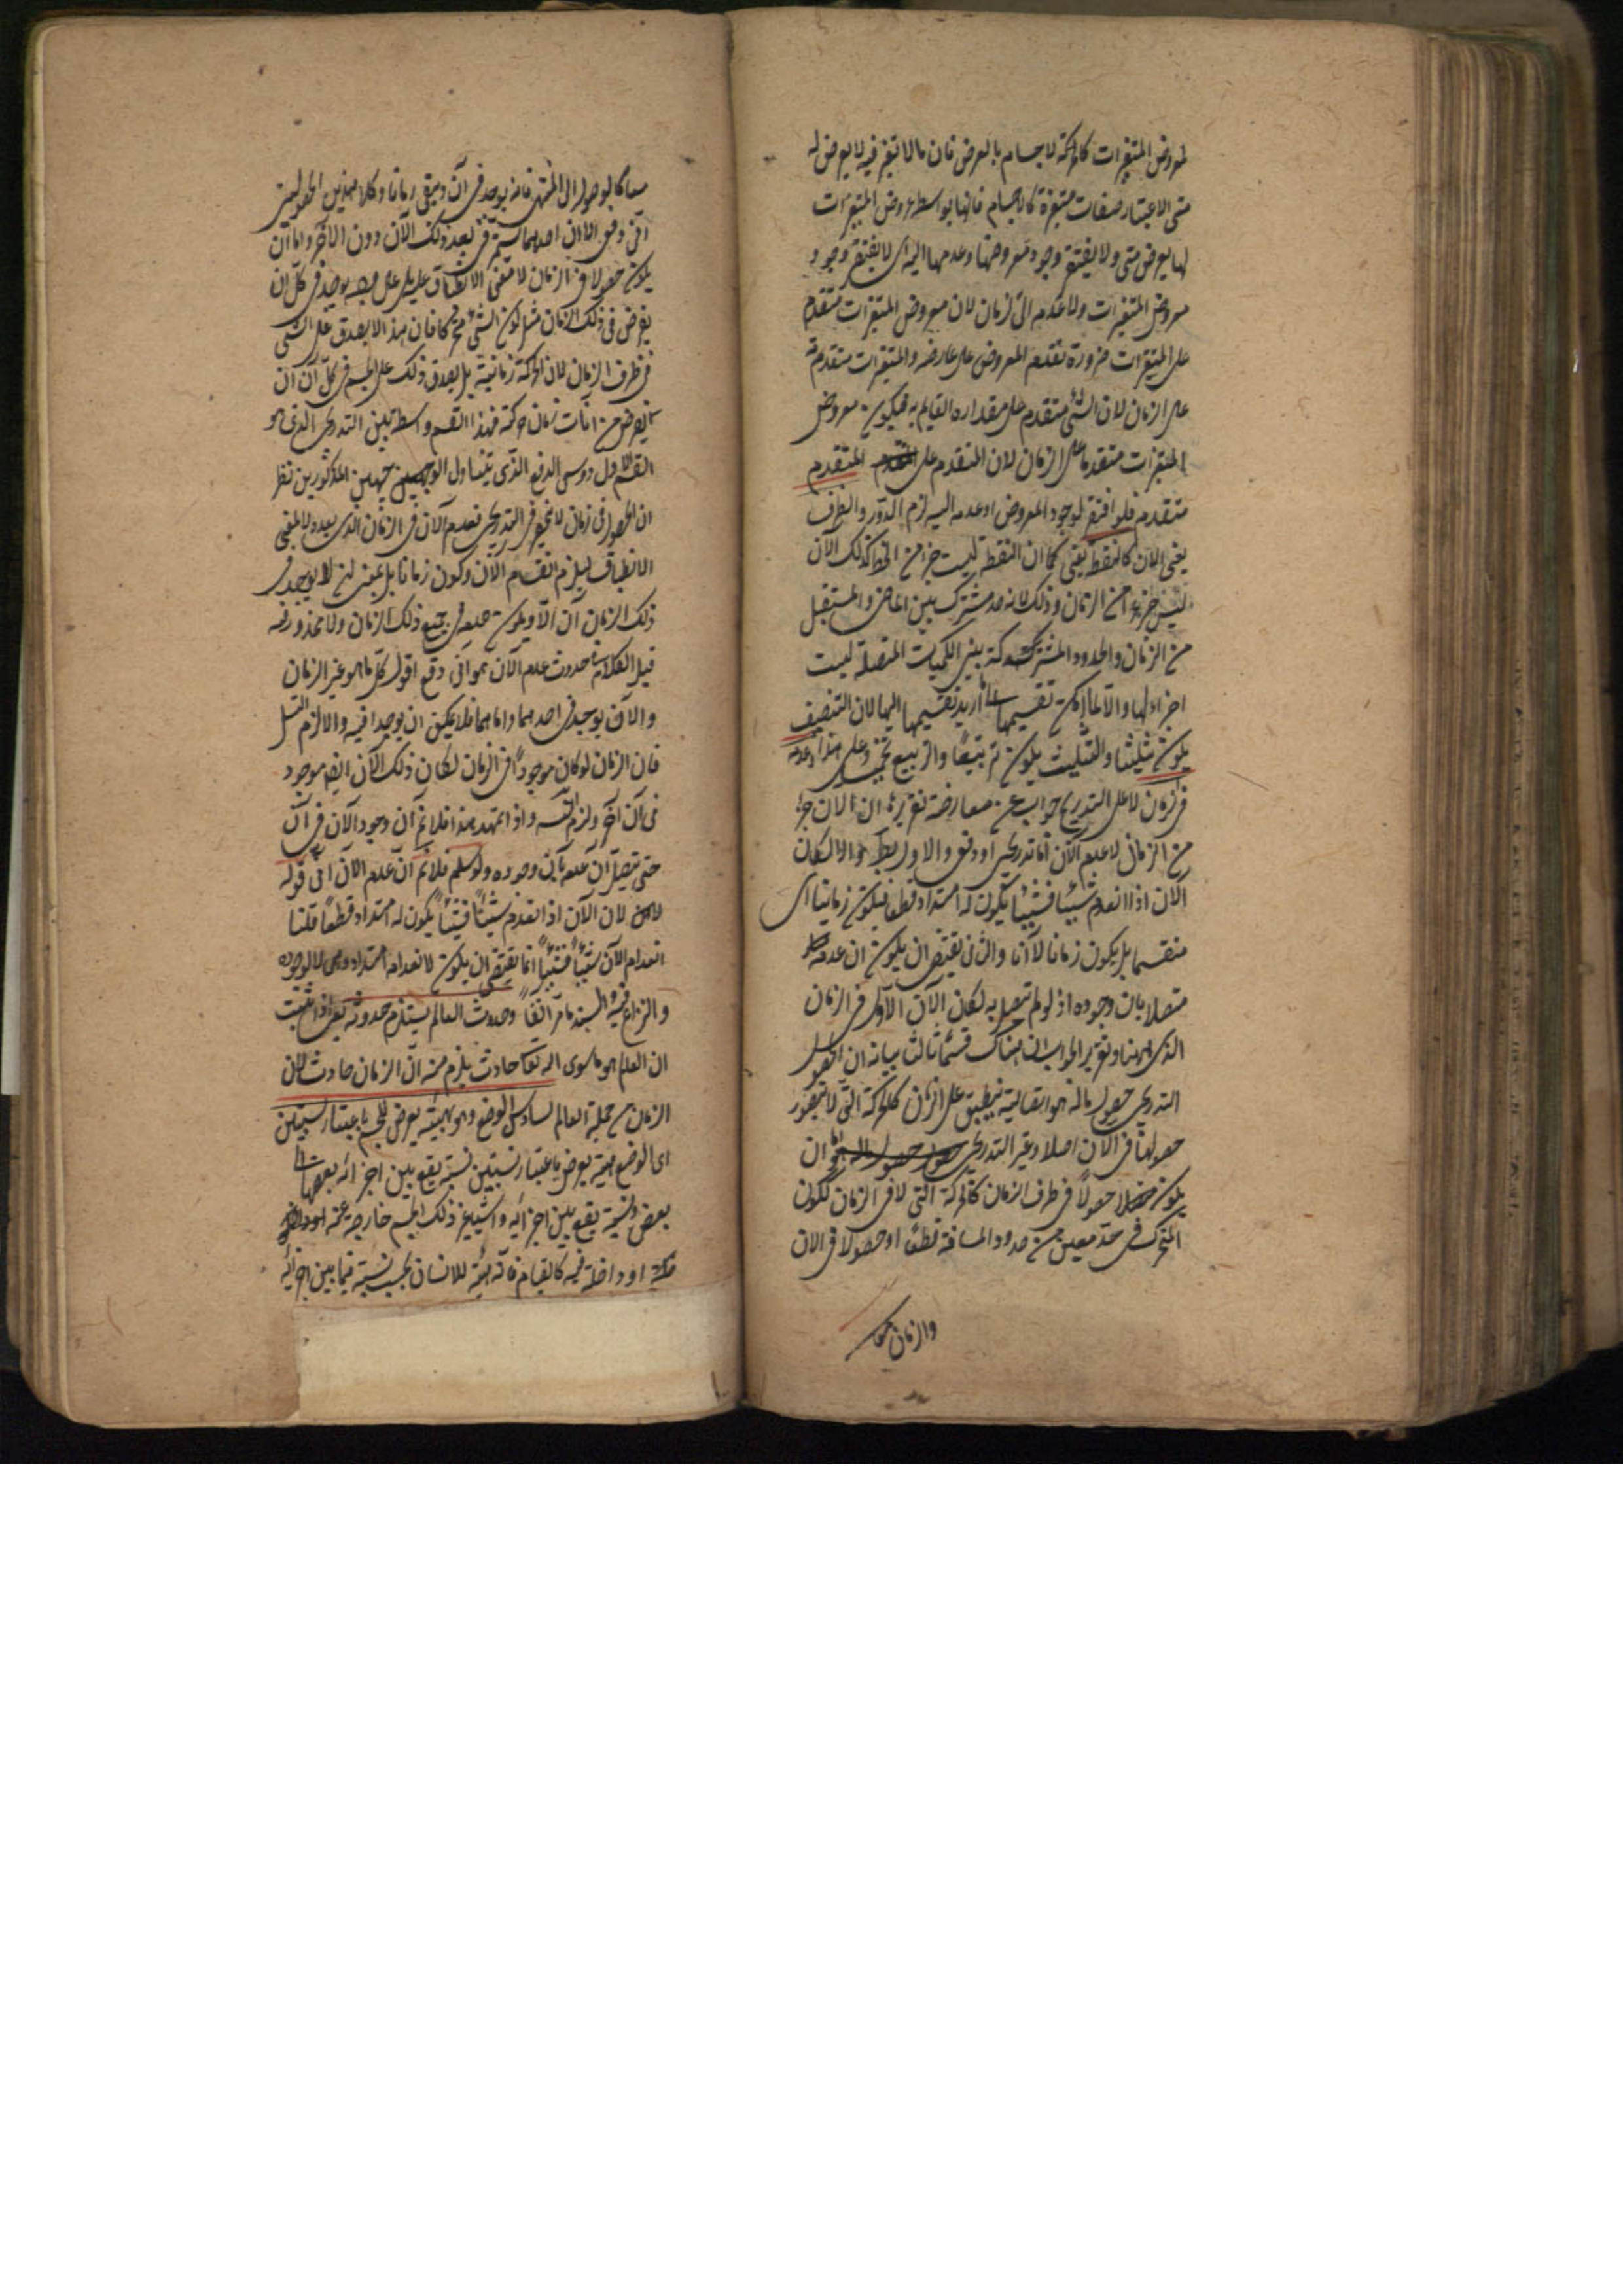 لمعروض المتغيرات كالحركة لاجسام بالعرض فان مالا تغير فيه لا يعرض له
متى الا عتبار صفات متغيرة كالاجسام فانها بواسطة عروض المتغيرات
لها يعرض متى ولا يفتقر وجود معروضها وعدمها اليه اى لا يفتقر وجود
معروض المتغيرات ولا عدمه الى الزمان لان معروض المتغيرات متقدم
على المتغيرات ضرورة تقدم المعروض على عارضه والمتغيرات متقدمة
على الزمان لان الشئ متقدم على مقداره القايم به فيكون معروض
المتغيرات متقدما على الزمان لان المتقدم على المتقدم
متقدم فلو افتقر لوجود المعروض او عدمه اليه لزم الدور والطرف
يعنى الان كالنقطة يعنى كما ان النقطة ليست جزء من الخط كذلك الآن
ليس جزءا من الزمان وذلك لانه حد مشترك بين الماضى والمستقبل
من الزمان والحدود المشتركة بين الكميات المتصلة ليست
اجزاء لها والا لما امكن تقسيمها اريد تقسيمها اليها لان التنصيف
يكون تثليثا والتثليث يكون تربيعا والتربيع تخميس وعلى هذا وعدمه
فى الزمان لا على التدريج جواب عن معارضة تقريره ان الان جزء
من الزمان لا عدم الآن اما تدريجى او دفعى والاول بط والا لكان
الان اذا انعدم شيئا فشيئا يكون له امتداد قطعا فيكون زمانيا اى
منقسما بل يكون زمانا لا آنا والثانى يقتضى ان يكون ان عدمه
متصلا بان وجوده اذ لو لم يتصل به لكان الآن الاول فى الزمان
الذى بينهما وتقرير الجواب ان هناك قسما ثالثا بيانه ان الحصول
التدريجى حصول ماله هوية اتصالية ينطبق على الزمان كالحركة التى لا يتصور
حصولها فى الان اصلا وغير التدريجى ان
يكون حصولا فى طرف الزمان كالحركة التى لا فى الزمان ككون
المتحرك فى حد معين من حدود المسافة قطعا او حصولا فى الان
والزمان
كالوصول الى المنتهى فانه يوجد فى آن ويبقى زمانا وكلا هذين الحصولين
آنى ودفعى الا ان احدهما يستمر بعد ذلك الآن دون الاخر واما ان
يكون حصولا فى الزمان لا بمعنى الانطباق عليه بل على وجه يوجد فى كل ان
يفرض فى ذلك الزمان مثل كون الشئ متحركا فان هذا لا يصدق على الشئ
فى طرف الزمان لان الحركة زمانية بل يصدق ذلك على الجسم فى كل آن ان
يفرض من انات زمان حركته فهذا القسم واسطة بين التدريجى الذى هو
القسم الاول وبين الدفعى الذى يتناول الوجهين المذكورين نظر
ان الحصول فى زمان لا ينحصر فى التدريجى فعدم الآن فى الزمان الذى بعده لا بمعنى
الانطباق ليلزم انقسام الآن وكون زمانا بل بمعنى انه لا يوجد فى
ذلك الزمان آن الا ويكون حاصلا فى جميع ذلك الزمان ولا محذور فيه
قيل الكلام فى حدوث عدم الآن هو آنى دفع اقول كل ما هو غير الزمان
والآن يوجد فى احدهما واما هما فلا يمكن ان يوجدا فيه والا لزم التسلسل
فان الزمان لو كان موجودا فى الزمان لكان ذلك الآن ايضا موجود
فى آن آخر ولزم التسلسل واذا تمهد هذا فلا نم ان وجود الآن فى آن
حتى يتصل آن عدمه بآن وجوده ولو سلم فلا نم ان عدم الآن آنى قوله
لان الآن اذا انعدم شيئا فشيئا يكون له امتداد قطعا قلنا
انعدام الآن شيئا فشيئا انما يقتضى ان يكون لانعدامه امتداد لا لوجوده
والنزاع فيه والسند ما مر آنفا وحدوث العالم يستلزم حدوثه يعنى اذا ثبت
ان العالم هو ما سوى الله تعالى حادث يلزم منه ان الزمان حادث لان
الزمان من جملة العالم السادس الوضع وهو هيئة يعرض للجسم باعتبار نسبتين
اى الوضع هيئة يعرض باعتبار نسبتين نسبة يقع بين اجزائه بعضها الى
بعض ونسبة يقع بين اجزائه واشياء غير ذلك الجسم خارجة عنه
او داخلة فيه كالقيام فانه هيئة للانسان بحسب نسبة فيما بين اجزائه